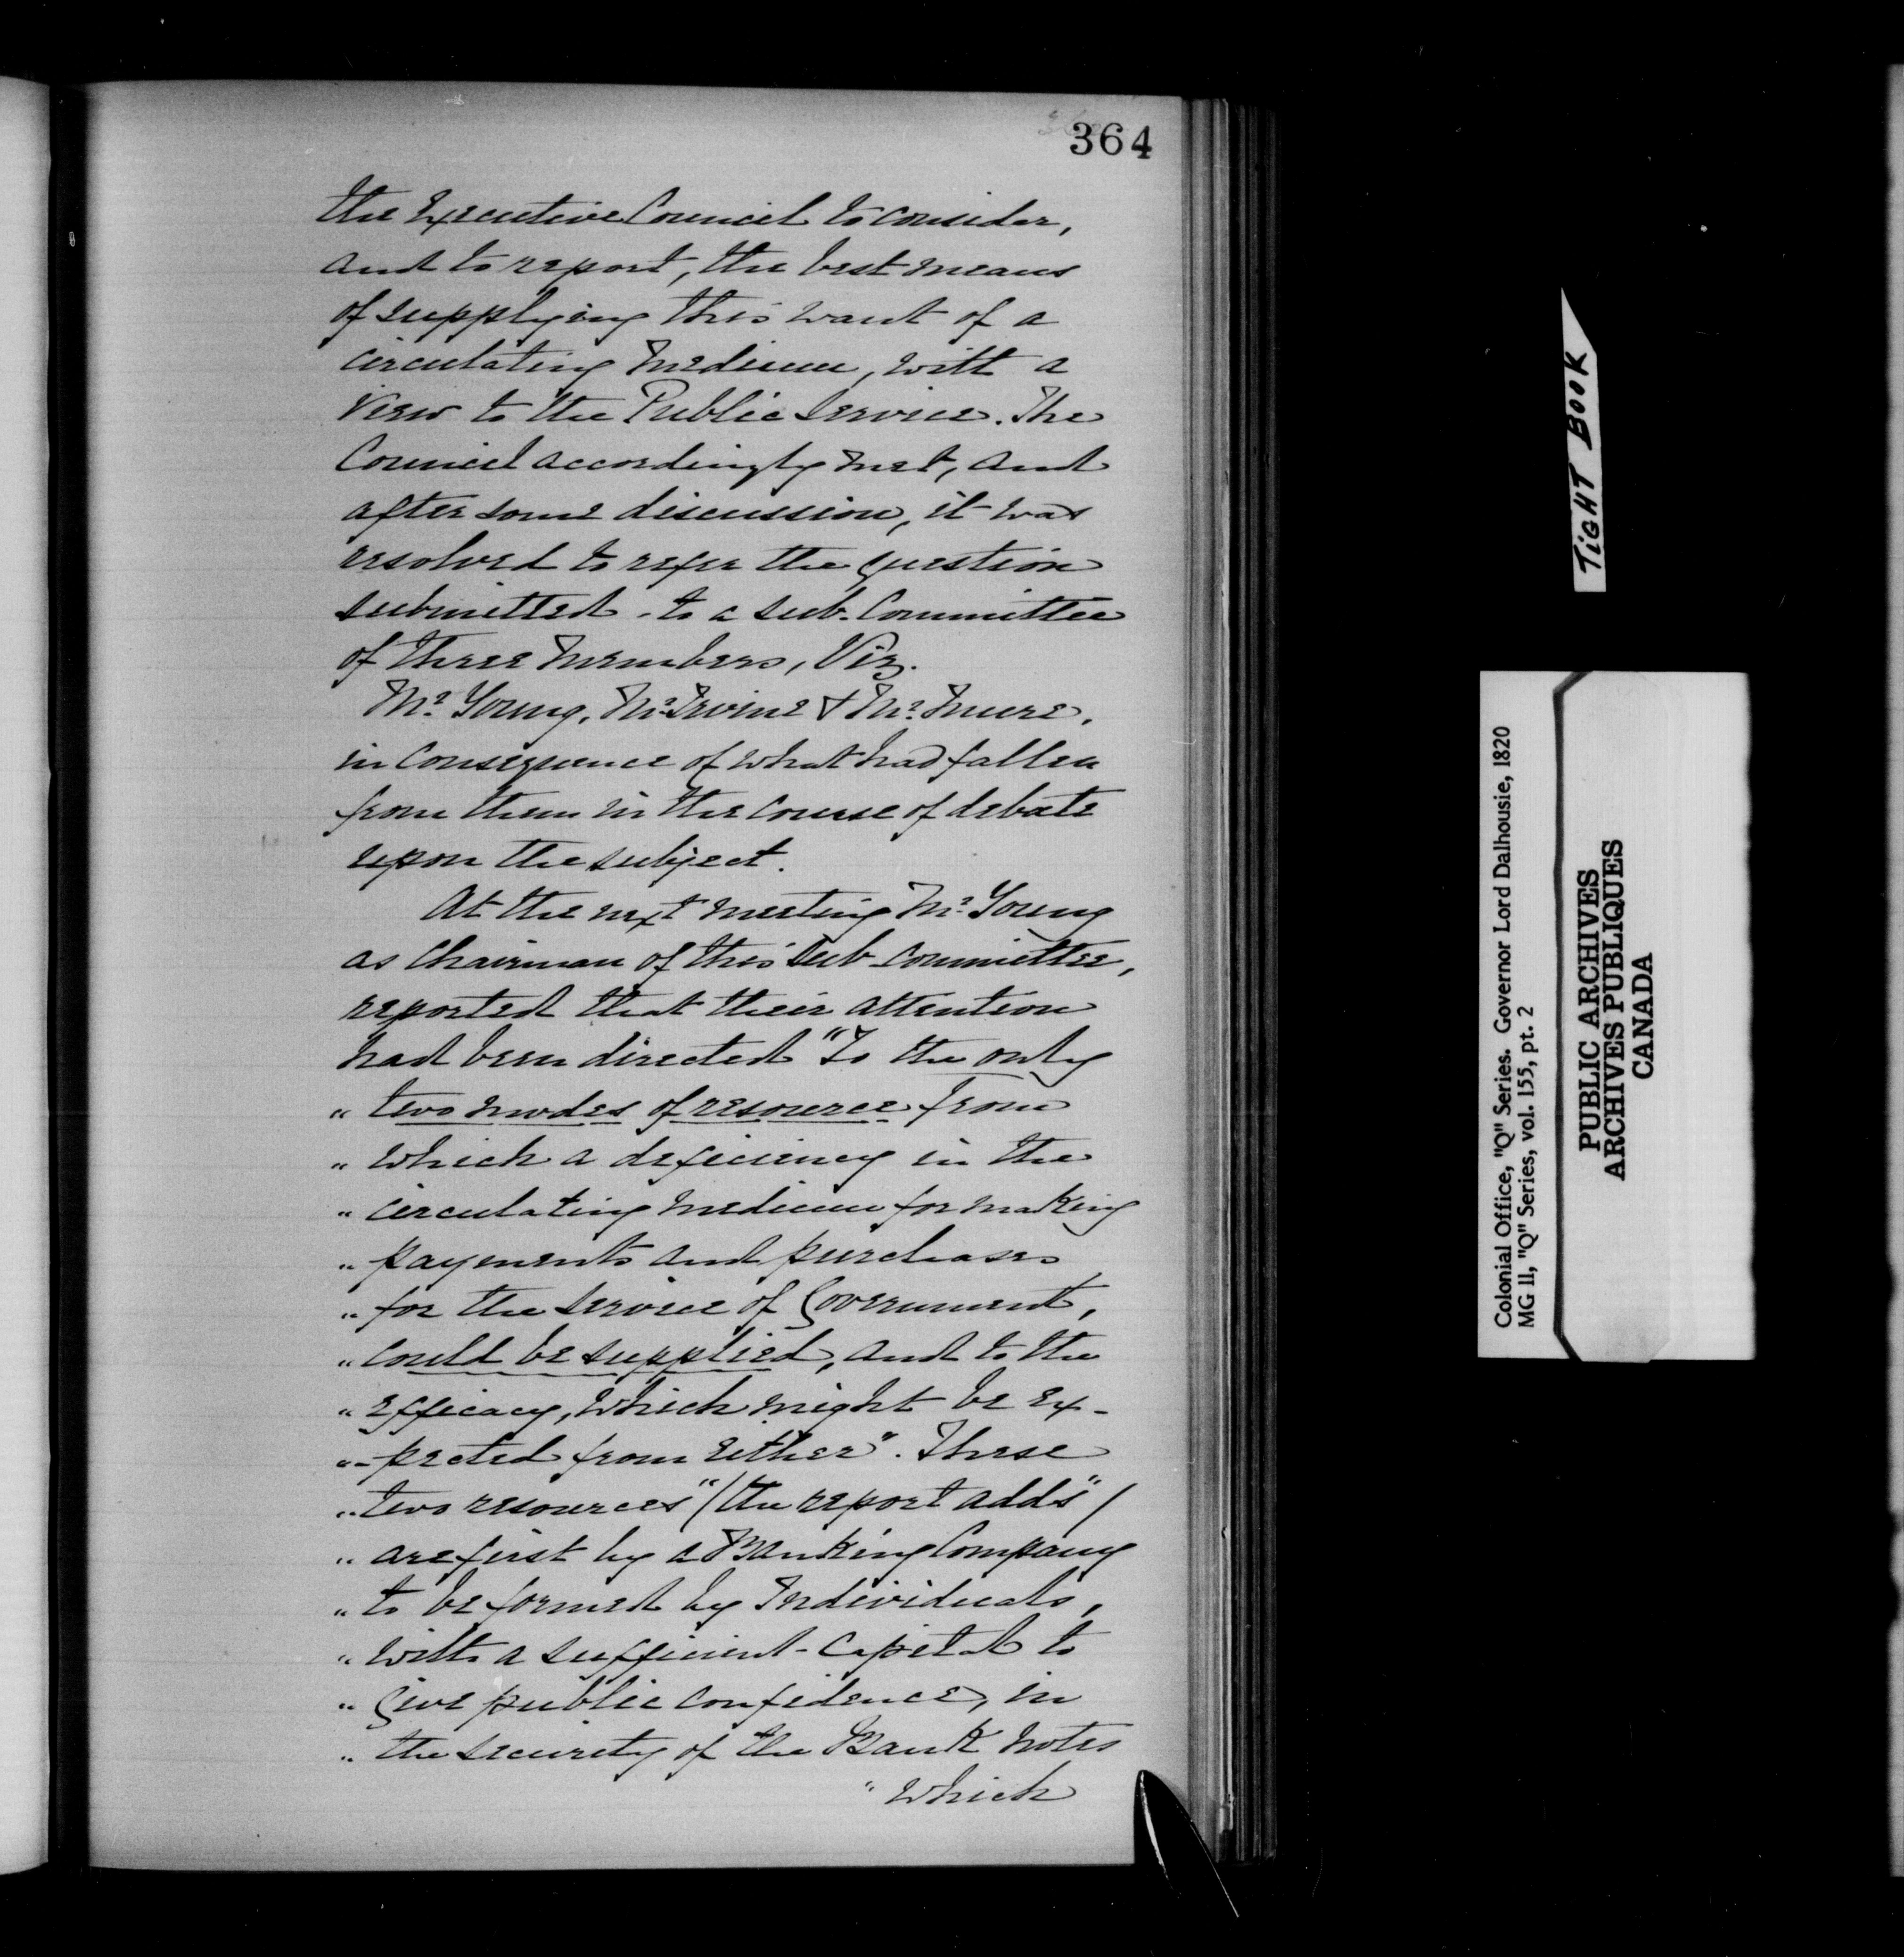 364
the Executive Council to consider,
and to report, the best means
of supplying this want of a
circulating medium, with a
view to the Public Service. The
Council accordingly met, and
after some discussion, it was
resolved to refer the question
submitted - to a sub-Committee
of three members, Viz.
Mr. Young, Mr. Irvine & Mr. Mure,
in consequence of what had fallen
from them in the course of debate
upon the subject.
At the next meeting Mr. Young
as Chairman of this Sub-Committee,
reported that their attention
had been directed "To the only
" two modes of resource from
" which a deficiency in the
" circulating medium for making
" payments and purchases
" for the service of Government,
" could be supplied, and to the
" efficacy, which might be ex-
" -pected from either". These
" two resources" (the report adds" /
" are first by a Banking Company
" to be formed by Individuals,
" with a sufficient - Capital to
" give public confidence, in
" the security of the Bank notes
" which
TIGHT BOOK
Colonial Office, "Q" Series. Governor Lord Dalhousie, 1820
MG 11, "Q" Series, vol. 155, pt. 2
PUBLIC ARCHIVES
ARCHIVES PUBLIQUES
CANADA